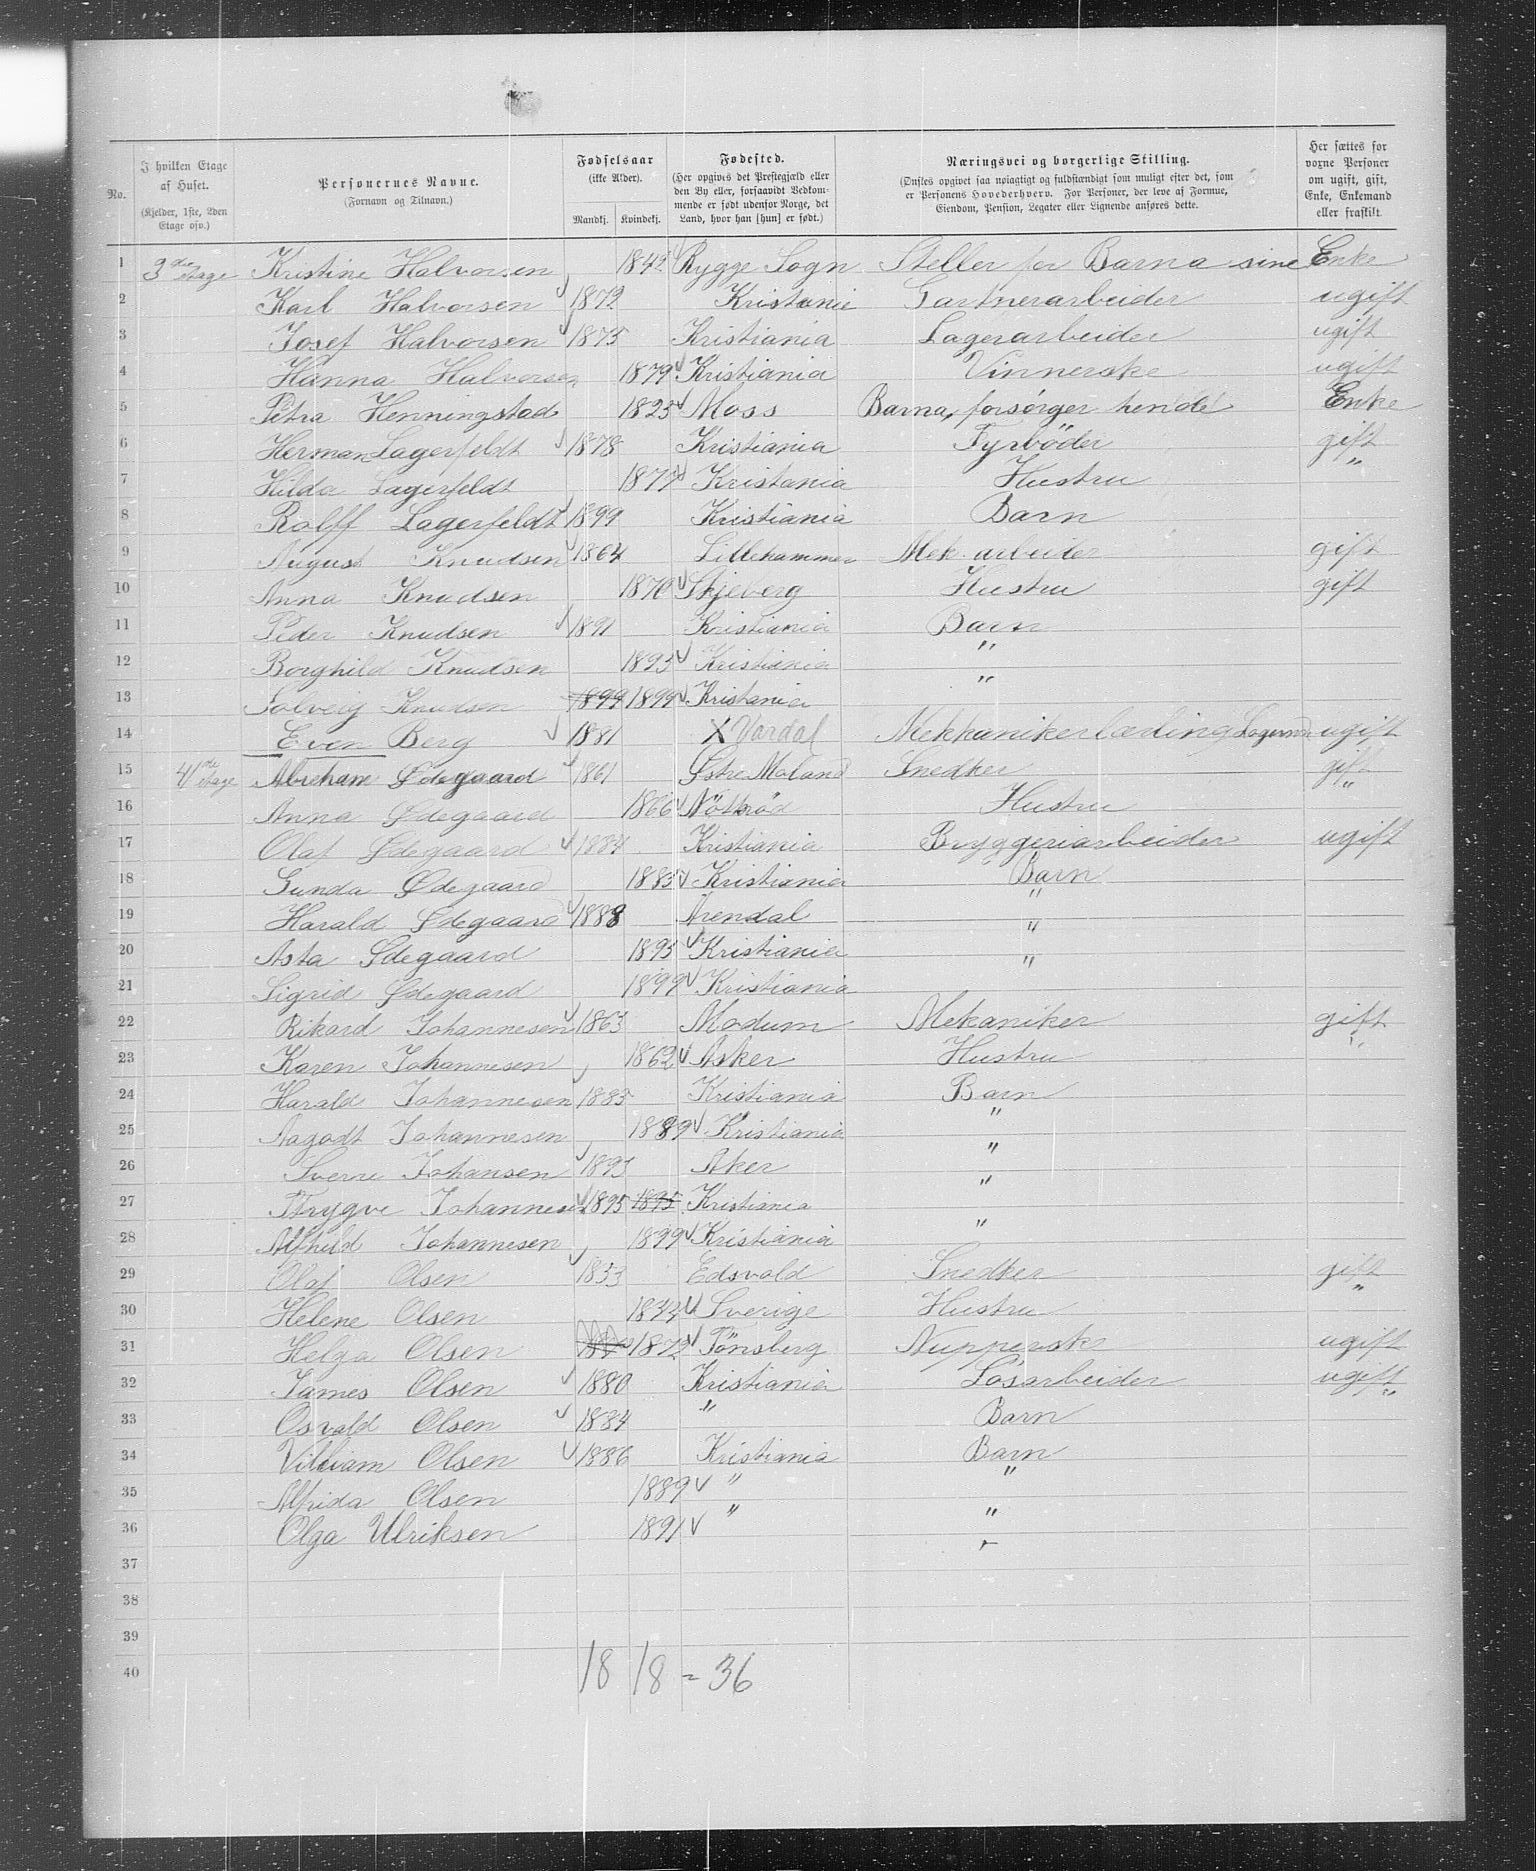 No.
I hvilken Etage af Huset.
(Kjelder, 1ste, 2den Etage osv.)
Personernes Navne.
(Fornavn og Tilnavn.)
Fødselsaar
(ikke Alder).
Mandkj. Kvindekj.
Fødested.
(Her opgives det Prestegjæld eller den By eller, forsaavidt Vedkommende er født udenfor Norge, det Land, hvor han [hun] er født.)
Næringsvei og borgerlige Stilling.
(Ønskes opgivet saa nøiagtigt og fuldstændigt som muligt efter det, som er Personens Hovederhverv. For Personer, der leve af Formue, Eiendom, Pension, Legater eller Lignende anføres dette.
Her sættes for voxne Personer om ugift, gift, Enke, Enkemand eller fraskilt.
1 3die etage Kristine Halvorsen 1842 Rygge Sogn Steller for Barna sine Enke
2 Karl Halvorsen 1872 Kristania Gartnerarbeider ugift
3 Josef Halvorsen 1875 Kristiania Lagerarbeider ugift
4 Hanna Halvorsen 1879 Kristiania Vinnerske ugift
5 Petra Henningstad 1825 Moss Barna forsørger hende Enke
6 Herman Lagerfeldt 1878 Kristiania Fyrbøder gift
7 Hilda Lagerfeldt 1877 Kristania Hustru "
8 Rolff Lagerfeldt 1899 Kristiania Barn
9 August Knudsen 1864 Lillehammer Mek. arbeider gift
10 Anna Knudsen 1870 Skjeberg Hustru gift
11 Peder Knudsen 1891 Kristiania Barn
12 Borghild Knudsen 1893 Kristiania "
13 Solveig Knudsen 1899 1899 Kristania "
14 Even Berg 1881 X Vardal Mekkanikerlærding Logerende ugift
15 4de etage Abreham Ødegaard 1861 Østre Moland Snedker gift
16 Anna Ødegaard 1866 Hustru "
17 Olaf Ødegaard 1884 Kristiania Bryggeriarbeider ugift
18 Gunda Ødegaard 1885 Kristiania Barn
19 Harald Ødegaard 1888 Arendal "
20 Asta Ødegaard 1895 Kristiania "
21 Sigrid Ødegaard 1899 Kristiania "
22 Rikard Johannesen 1863 Modum Mekaniker gift
23 Karen Johannesen 1862 Asker Hustru "
24 Harald Johannesen 1885 Kristiania Barn
25 Aagodt Johannesen 1889 Kristiania "
26 Sverre Johansen 1893 Aker "
27 Trygve Johannesen 1895 1895 Kristiania "
28 Alfhild Johannesen 1899 Kristiania "
29 Olaf Olsen 1853 Edsvold Snedker gift
30 Helene Olsen 1844 Sverige Hustru "
31 Helga Olsen 1872 Tönsberg Nupperske ugift
32 James Olsen 1880 Kristiania Løsarbeider ugift
33 Osvald Olsen 1884 " Barn "
34 Villiam Olsen 1886 Kristiania Barn
35 Alfrida Olsen 1889 " "
36 Olga Ulriksen 1891 " "
37
38
39
40
18 18 = 36